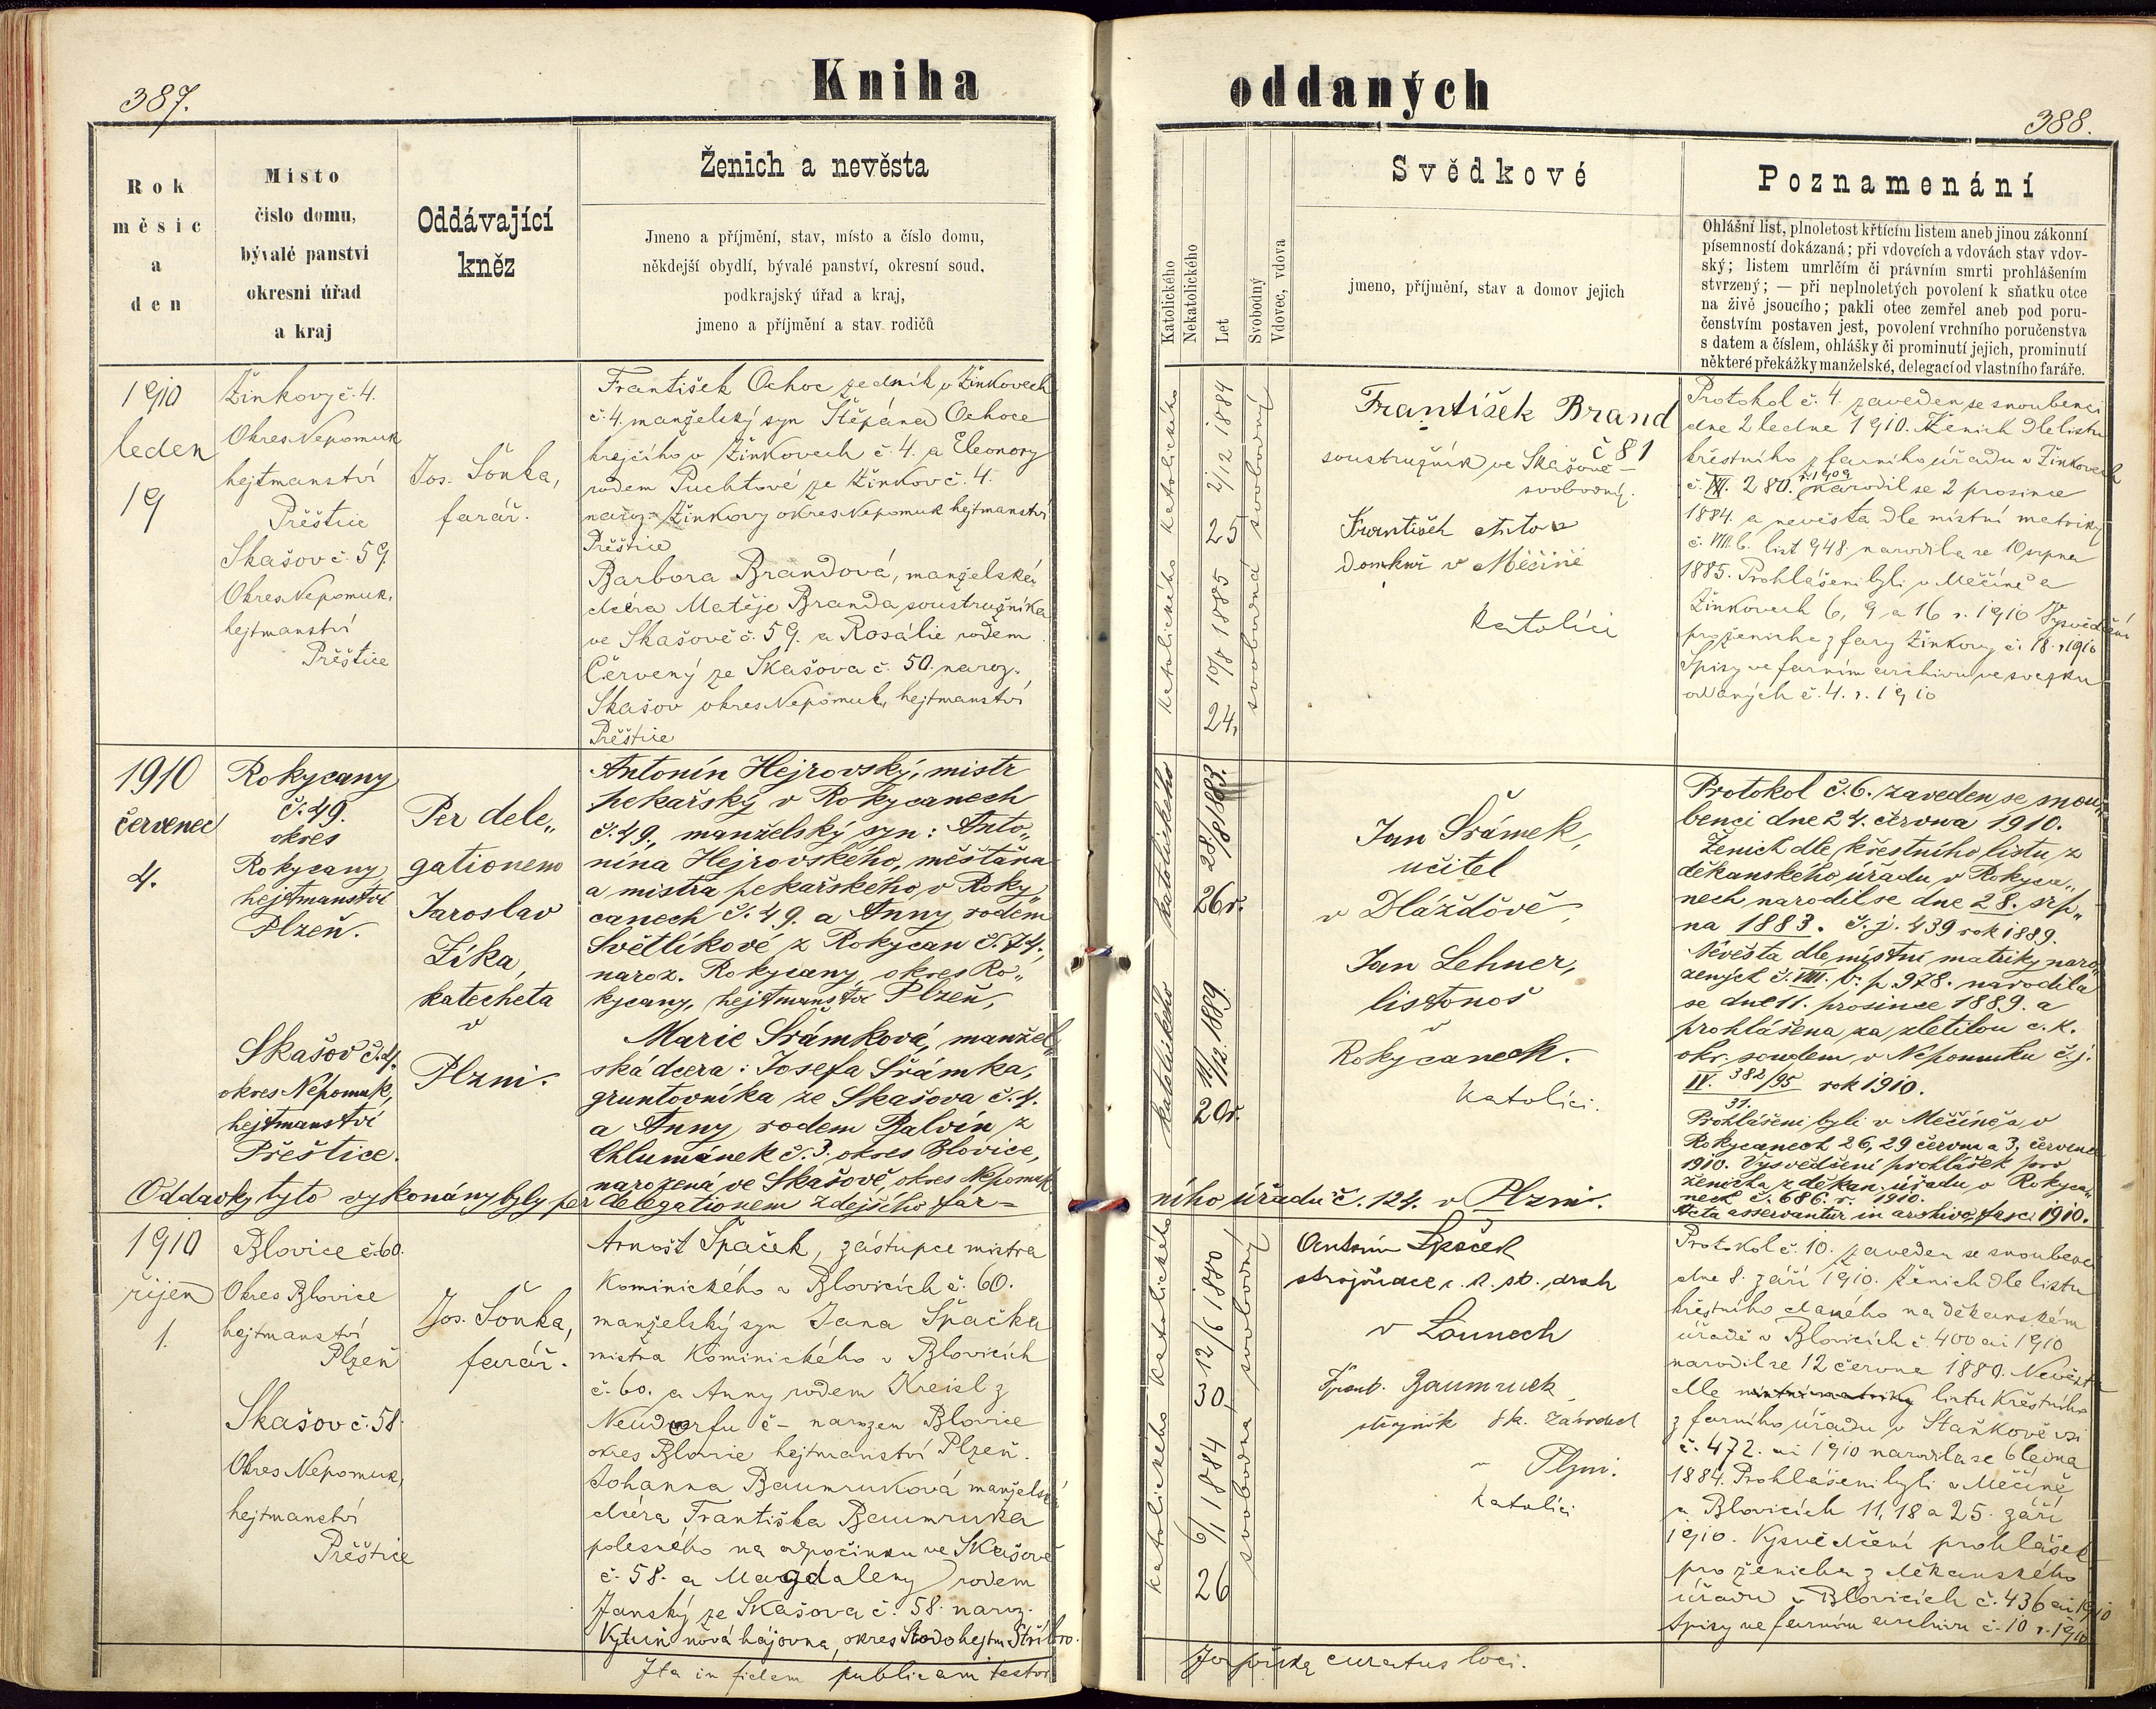 387.
Kniha
Rok
měsíc
a
den
Místo
číslo domu,
bývalé panství
okresní úřad
a kraj
Oddávající
kněz
Ženich a nevěsta
Jmeno a příjmění, stav, místo a číslo domu,
někdejší obydlí, bývalé panství, okresní soud,
podkrajský úřad a kraj,
jmeno a příjmění a stav rodičů
1910
leden
19
Žinkovy č. 4.
Okres Nepomuk
hejtmanství
Přěštice
Skašov č. 59.
Okres Nepomuk,
hejtmanství
Přěštice
Jos. Šonka,
farář.
František Ochoc zedník v Žinkovech
č. 4. manželský syn Štěpána Ochoce
krejčího v Žinkovech č. 4. a Eleonory
rodem Puchtové ze Žinkov č. 4.
naroz. Žinkovy okres Nepomuk hejtmanství
Přěštice
Barbora Brandová, manželská
dcera Matěje Branda soustružníka
ve Skašově č. 59. a Rosálie rodem
Červený ze Skašova č. 50. naroz.
Skašov okres Nepomuk, hejtmanství
Přěštice
1910
červenec
4.
Rokycany
č. 49.
okres
Rokycany,
hejtmanství
Plzeň.
Skašov č. 4.
okres Nepomuk,
hejtmanství
Přeštice.
Per dele„
gationem
Jaroslav
Zíka,
katecheta
v
Plzni.
Antonín Hejrovský, mistr
pekařský v Rokycanech
č. 49., manželský syn: Anto„
nína Hejrovského, měšťana
a mistra pekařského v Roky„
canech č. 49. a Anny rodem
Světlíkové z Rokycan č. 74.,
naroz. Rokycany, okres Ro„
kycany, hejtmanství Plzeň,
Marie Šrámková, manžel„
ská dcera: Josefa Šrámka,
gruntovníka ze Skašova č. 4.
a Anny rodem Balvín z
Chlumánek č. 3. okres Blovice,
narozená ve Skašově, okres Nepomuk
Oddavky tyto vykonány byly per delegationem zdejšího far=
1910
říjen
1.
Blovice č. 60.
Okres Blovice
hejtmanství
Plzeň
Skašov č. 58.
Okres Nepomuk,
hejtmanství
Přěštice
Jos. Šonka,
farář.
Arnošt Špaček, zástupce mistra
Kominického v Blovicích č. 60.
manželský syn Jana Špačka
mistra Kominického v Blovicích
č. 60. a Anny rodem Kreisl z
Neudorfu č – narozen Blovice
okres Blovice hejtmanství Plzeň.
Johanna Baumruková manželská
dcera Františka Baumruka
polesného na odpočinku ve Skašově
č. 58. a Magdaleny rodem
Janský ze Skašova č. 58. naroz.
nová hájovna, okres Stodo hejtm Stříbro.
Ita in fidem publicam testor
388.
oddaných
Katolického
Nekatolického
Let
Svobodný
Vdovec, vdova
Svědkové
jmeno, příjmění, stav a domov jejich
Poznamenání
Ohlášní list, plnoletost křticím listem aneb jinou zákonní
písemností dokázaná; při vdovcích a vdovách stav vdov-
ský; listem umrlčím či právním smrti prohlášením
stvrzený; — při neplnoletých povolení k sňatku otce
na živě jsoucího; pakli otec zemřel aneb pod poru-
čenstvím postaven jest, povolení vrchního poručenstva
s datem a číslem, ohlášky či prominutí jejich, prominutí
některé překážky manželské, delegací od vlastního faráře.
Katolického
2/12 1884
25
svobodný
Katolického
10/8 1885
24.
svobodná
František Brand
č 81
soustružník ve Skašově –
svobodný.
František
domkař v Měčíně
Katolíci
Protokol č. 4. zaveden se snoubenci
dne 2 ledna 1910. Ženich dle listu
křestního z farního úřadu v Žinkovech
č. VII. 280. r. 1909 narodil se 2 prosince
1884. a nevěsta dle místní matriky
č. VIII. b. list 948. narodila se 10 srpna
1885. Prohlášeni byli v Měčíně a
Žinkovech 6, 9 a 16 r. 1910 Vysvědčení
pro ženicha z fary Žinkovy č. 18. r 1910
Spisy ve farním archivu ve svazku
oddaných č. 4. r. 1910
katolického
28/8 1883.
26r.
katolického
11/12. 1889.
20r.
Jan Šrámek,
učitel
v Dlážďově,
Jan Lehner,
listonoš
v
Rokycanech.
Katolíci.
Protokol č. 6. zaveden se snou„
benci dne 24. června 1910.
Ženich dle křestního listu z
děkanského úřadu v Rokyca„
nech narodil se dne 28. srp„
na 1883. č. j. 439 rok 1889.
Nevěsta dle místní matriky naro„
zených č. VIII. b. p. 978. narodila
se dne 11. prosince 1889. a
prohlášena za zletilou c. k.
okr. soudem v Nepomuku č. j.
IV. 382/95 rok 1910.
31.
Prohlášeni byli v Měčíně a v
Rokycanech 26, 29 června a 3. července
1910. Vysvědčení prohlášek pro
ženicha z děkan. úřadu v Rokyca„
nech č. 686. r. 1910.
Acta asservantur in archivo fasc. 1910.
ního úřadu č. 124. v Plzni.
Katolického
12/6 1880
30
svobodný
Katolického
6/1 1884
26
svobodná
Antonín Špaček
strojvůdce c. k. st. drah
v Lounech
Frant. Baumruck
strojník Šk. Závodech
v Plzni.
Katolíci
Protokol č. 10. zaveden se snoubenci
dne 8. září 1910. Ženich dle listu
křestního daného na děkanském
úřadě v Blovicích č. 400 ai 1910
narodil se 12 června 1880. Nevěsta
dle místní matriky listu Křestního
z farního úřadu v Staňkově vsi
č. 472. ai 1910 narodila se 6 ledna
1884. Prohlášeni byli v Měčíně
a Blovicích 11, 18 a 25. září
1910. Vysvědčení prohlášek
pro ženicha z děkanského
úřadu v Blovicích č. 436 ai 1910
Spisy ve farním archivu č. 10 r. 1910
curatus loci.